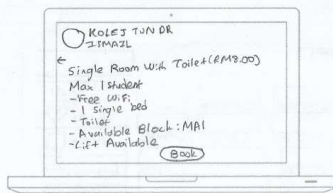 KOLEJ TUN DR
ISMAIL
←
Single Room With Toilet (RM8.00)
Max 1 student
- Free WiFi
- 1 Single bed
- Toilet
- Available Block : MA1
- Lift Available
Book